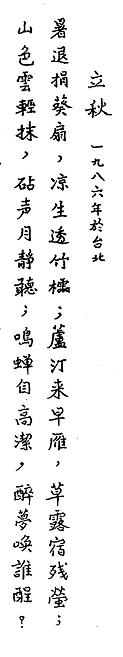 立秋 一九八六年於台北
暑退捐葵扇，凉生透竹櫺；蘆汀来早雁，草露宿残螢；
山色雲輕抹，砧声月静聽；鳴蟬自高潔，醉夢喚誰醒？